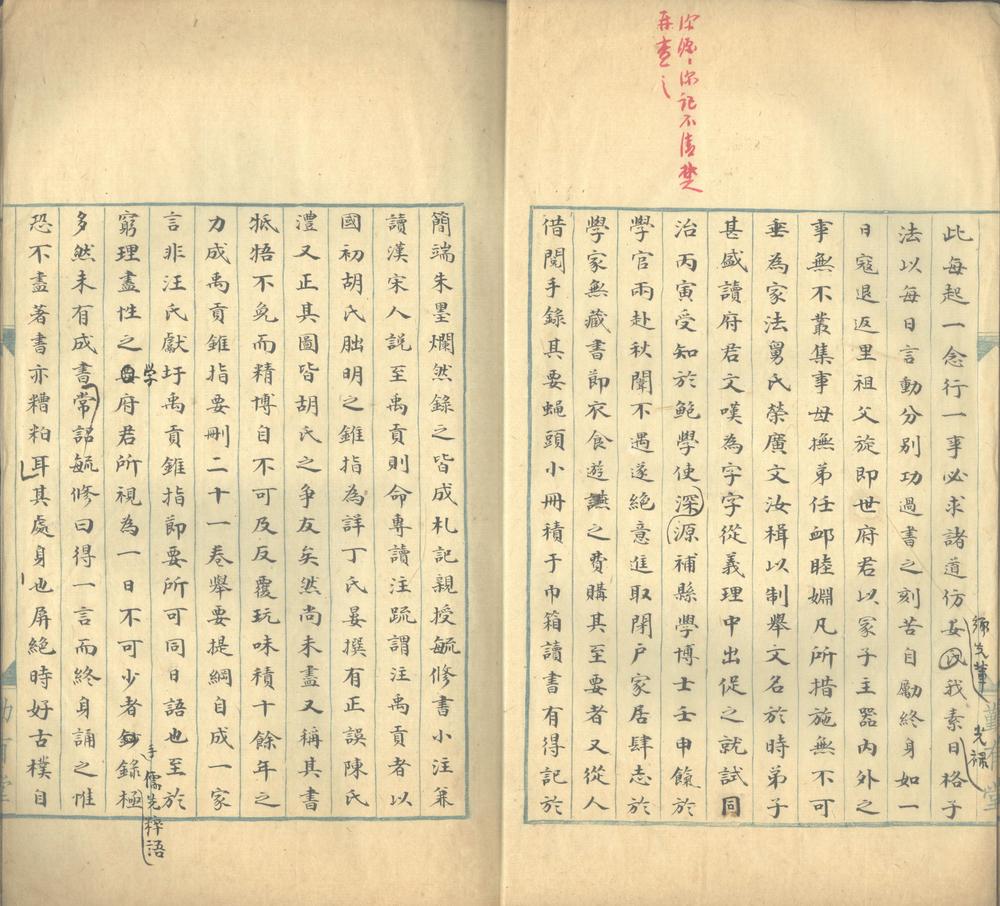 深源、源記不清楚
再查之
此每起一念行一事必求諸道仿姜國我素日格子
鄉先輩
光祿
法以每日言動分別功過書之刻苦自勵終身如一
日寇退返里祖父旋即世府君以冢子主器內外之
事無不叢集事母撫弟任卹睦婣凡所措施無不可
垂為家法舅氏榮廣文汝楫以制舉文名於時弟子
甚盛讀府君文嘆為字字從義理中出促之就試同
治丙寅受知於鮑學使深源補縣學博士壬申餼於
學官兩赴秋闈不遇遂絕意進取閉戶家居肆志於
學家無藏書節衣食遊讌之費購其至要者又從人
借閱手錄其要蠅頭小冊積于巾箱讀書有得記於
簡端朱墨爛然錄之皆成札記親授毓修書小注兼
讀漢宋人說至禹貢則命專讀注疏謂注禹貢者以
國初胡氏朏明之錐指為詳丁氏晏撰有正誤陳氏
澧又正其圖皆胡氏之爭友矣然尚未盡又稱其書
牴牾不免而精博自不可及反覆玩味積十餘年之
力成禹貢錐指要刪二十一卷舉要提綱自成一家
言非汪氏獻玗禹貢錐指節要所可同日語也至於
窮理盡性之學府君所視為一日不可少者手錄極
儒先粹語
多然未有成書常詔毓修曰得一言而終身誦之惟
恐不盡著書亦糟粕耳其處身也屏絕時好古樸自